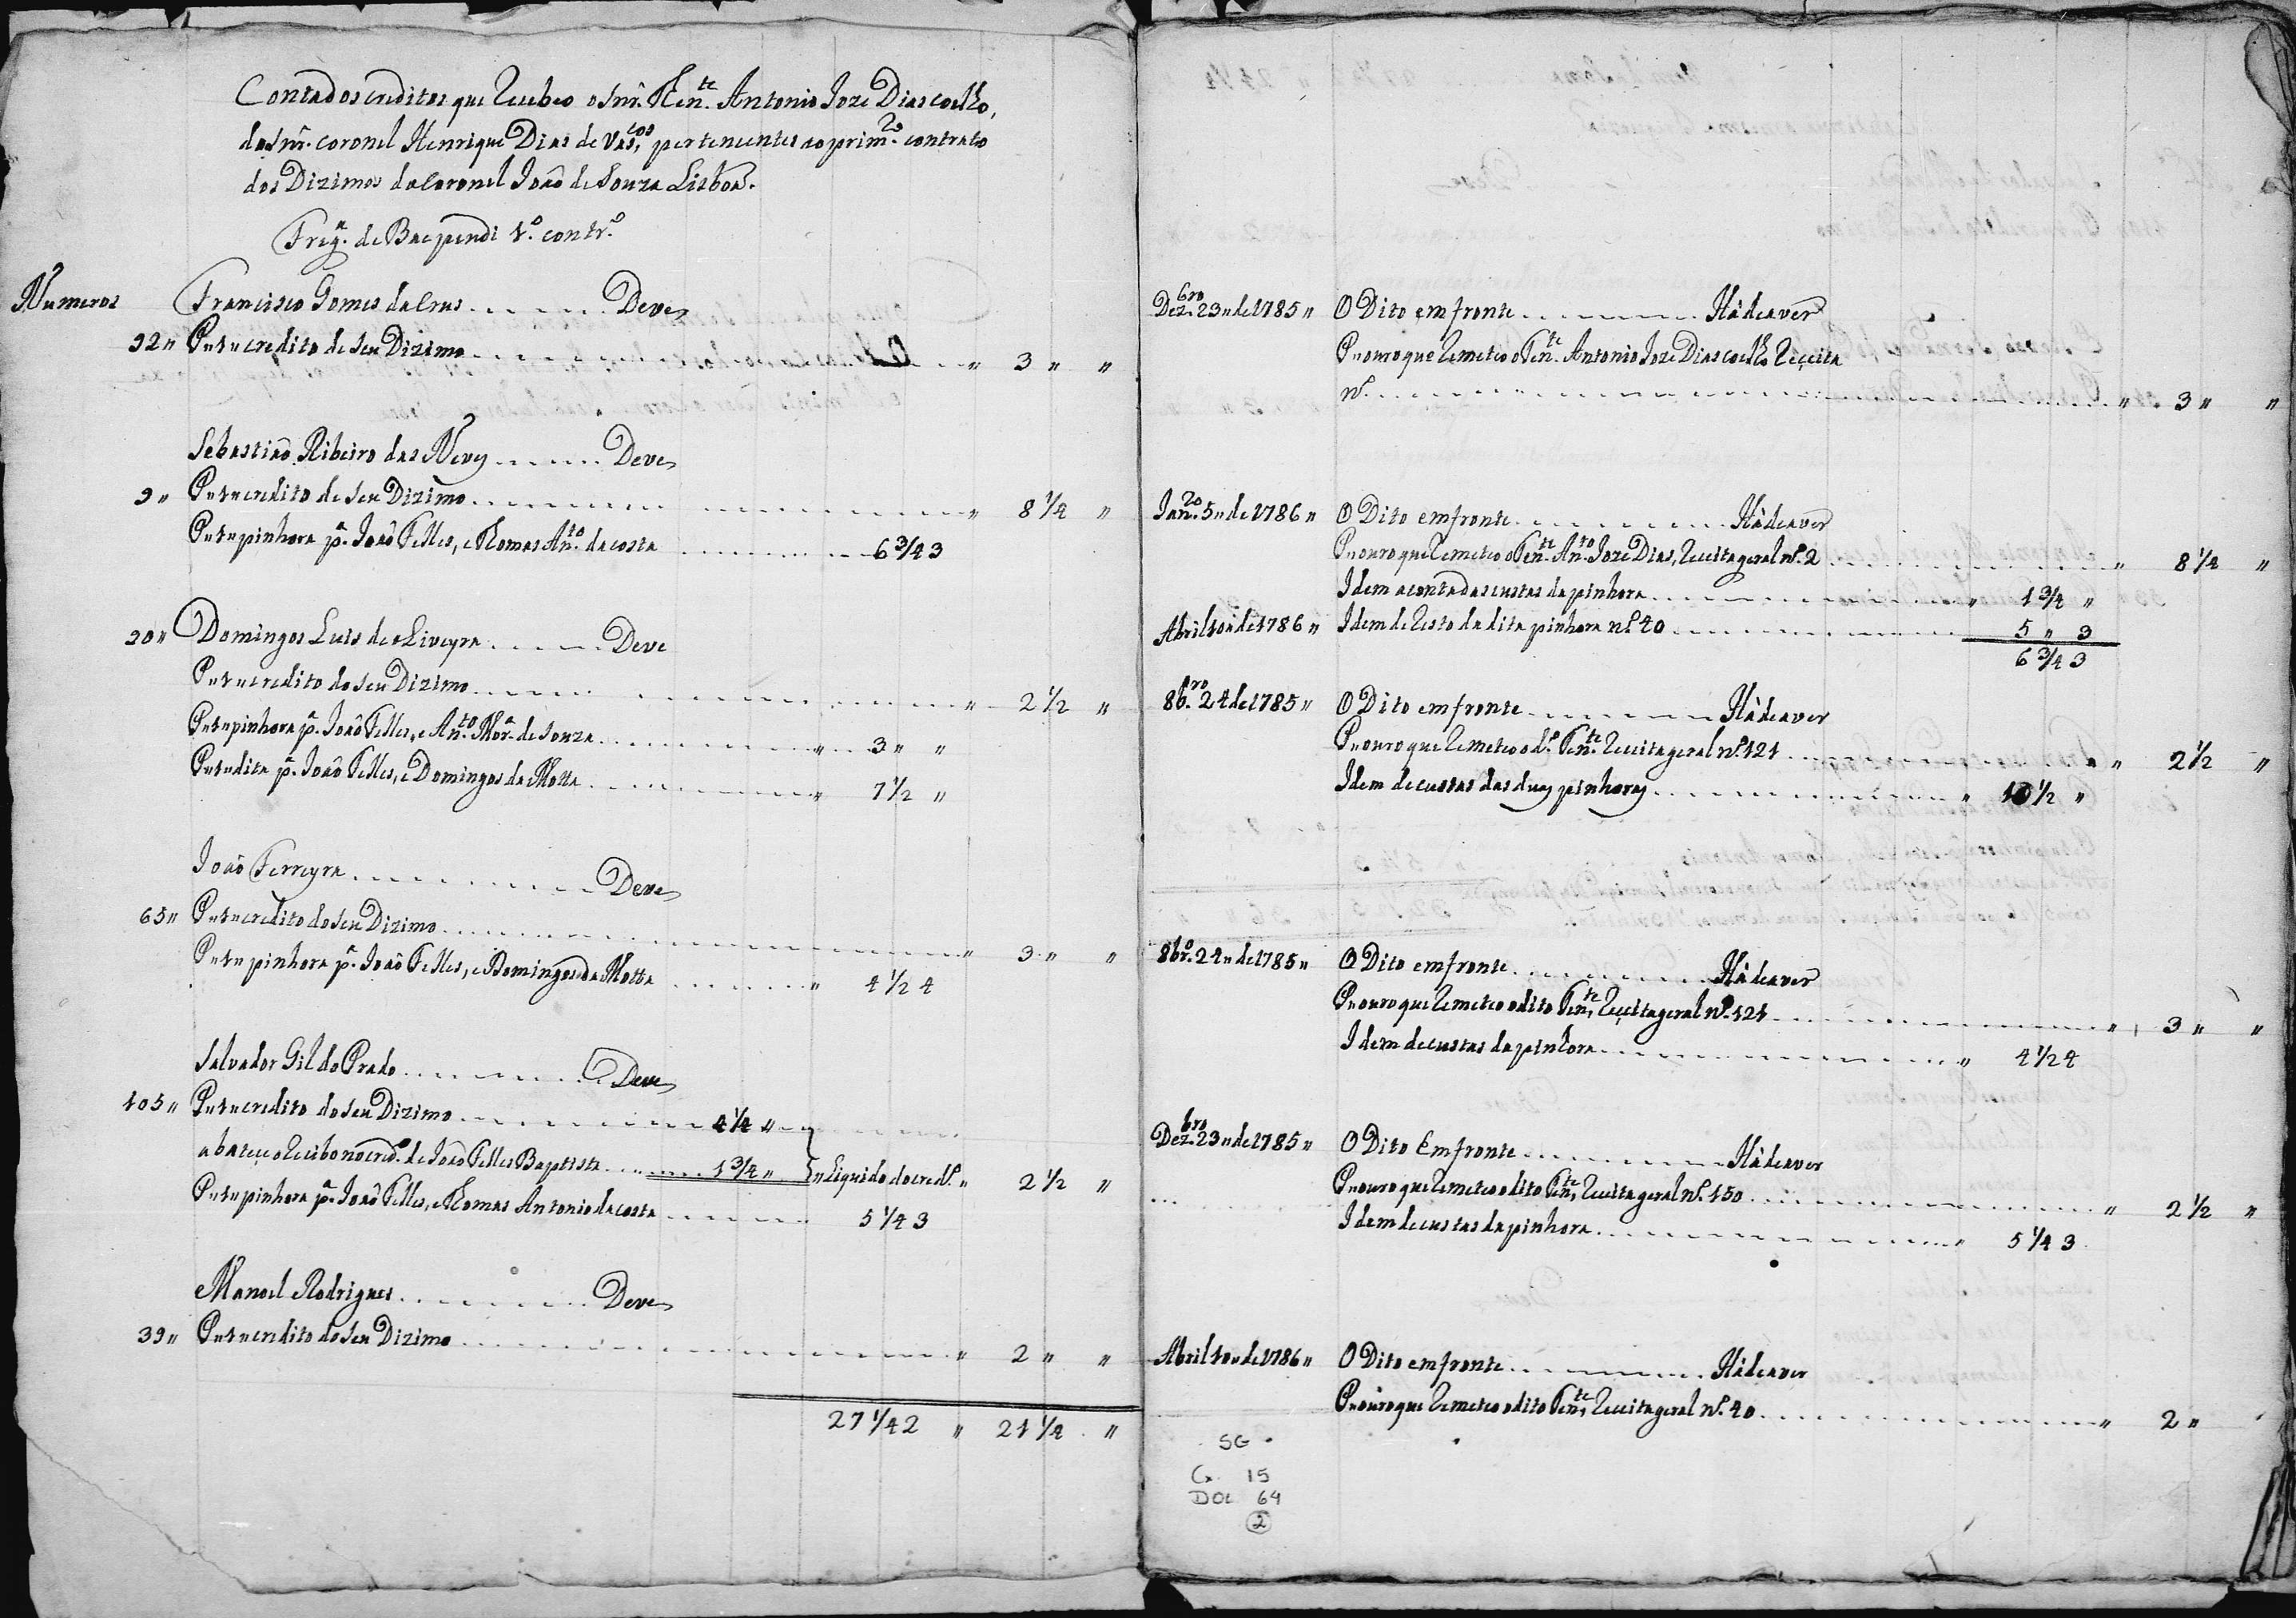 Conta dos creditos que Recebeo o Snr. Ten.te Antonio Joze Dias Coelho,
do Snr. Coronel Henrique Dias de Vas.cos, pertencentes ao prim.ro contrato
dos Dizimos do Coronel João de Souza Lisboa.
Freg.a de Baependi 1.o contr.o
Numeros Francisco Gomes da Crus ...... Deve
92 " P " 1 " credito de seu Dizimo ...... " 3 " "
Sebastião Ribeiro das Neves ...... Deve
9 " P " 1 " credito de seu Dizimo ...... " 8 1/4 "
P " 1 " pinhora p.a João Telles, e Thomas An.to da costa ...... 6 3/4 3
30 " Domingos Luis de oLiveyra ...... Deve
P " 1 " credito do seu Dizimo ...... " 2 1/2 "
P " 1 " pinhora p.a João Telles, e An.to Mor.a de Souza ...... " 3 " "
P " 1 " dita p.a João Telles, e Domingos da Motta ...... " 7 1/2 "
João Ferreyra ...... Deve
65 " P " 1 " credito do seu Dizimo ...... " 3 " "
P " 1 " pinhora p.a João Telles, e Domingos da Motta ...... " 4 1/2 4
Salvador Gil do Prado ...... Deve
105 " P " 1 " credito do seu Dizimo ...... 4 1/4 "
abateçe o Recibo no cred.o de João Telles Baptista ...... 1 3/4 " " Liquido do cred.o " 2 1/2 "
P " 1 " pinhora p.a João Telles, e Thomas Antonio da costa ...... 5 1/4 3
Manoel Rodrigues ...... Deve
39 " P " 1 " credito do seu Dizimo ...... " 2 " "
27 1/4 2 " 21 1/4 "
Dez.bro 23 " de 1785 " O Dito em fronte ...... Há de aver
P " ouro que Remeteo o Ten.te Antonio Joze Dias Coelho Reçeita
n.o ...... " 3 " "
Jan.ro 5 " de 1786 " O Dito em fronte ...... Há de aver
P " ouro que Remeteo o Ten.te An.to Joze Dias, Receita geral n.o 2 ...... " 8 1/4 "
Idem a conta das custas da pinhora ...... " 1 3/4 "
Abril 10 " de 1786 " Idem de Resto da dita pinhora n.o 40 ...... 5 " 3
6 3/4 3
8b.ro 24 de 1785 " O Dito em fronte ...... Há de aver
P " ouro que Remeteo o d.o Ten.te Receita geral n.o 121 ...... " 2 1/2 "
Idem de custas das duas pinhoras ...... " 10 1/2 "
8br.o 24 " de 1785 " O Dito em fronte ...... Há de aver
P " ouro que Remeteo o dito Ten.te, Reçeita geral n.o 121 ...... " 3 " "
Idem de custas da pinhora ...... " 4 1/2 4
Dez.bro 23 " de 1785 " O Dito Em fronte ...... Há de aver
P " ouro que Remeteo o dito Ten.te, Receita geral n.o 150 ...... " 2 1/2 "
Idem de custas da pinhora ...... " 5 1/4 3
Abril 10 " de 1786 " O Dito em fronte ...... Há de aver
P " ouro que Remeteo o dito Ten.te, Receita geral n.o 40 ...... " 2 "
SG
Cx. 15
DOC 64
2